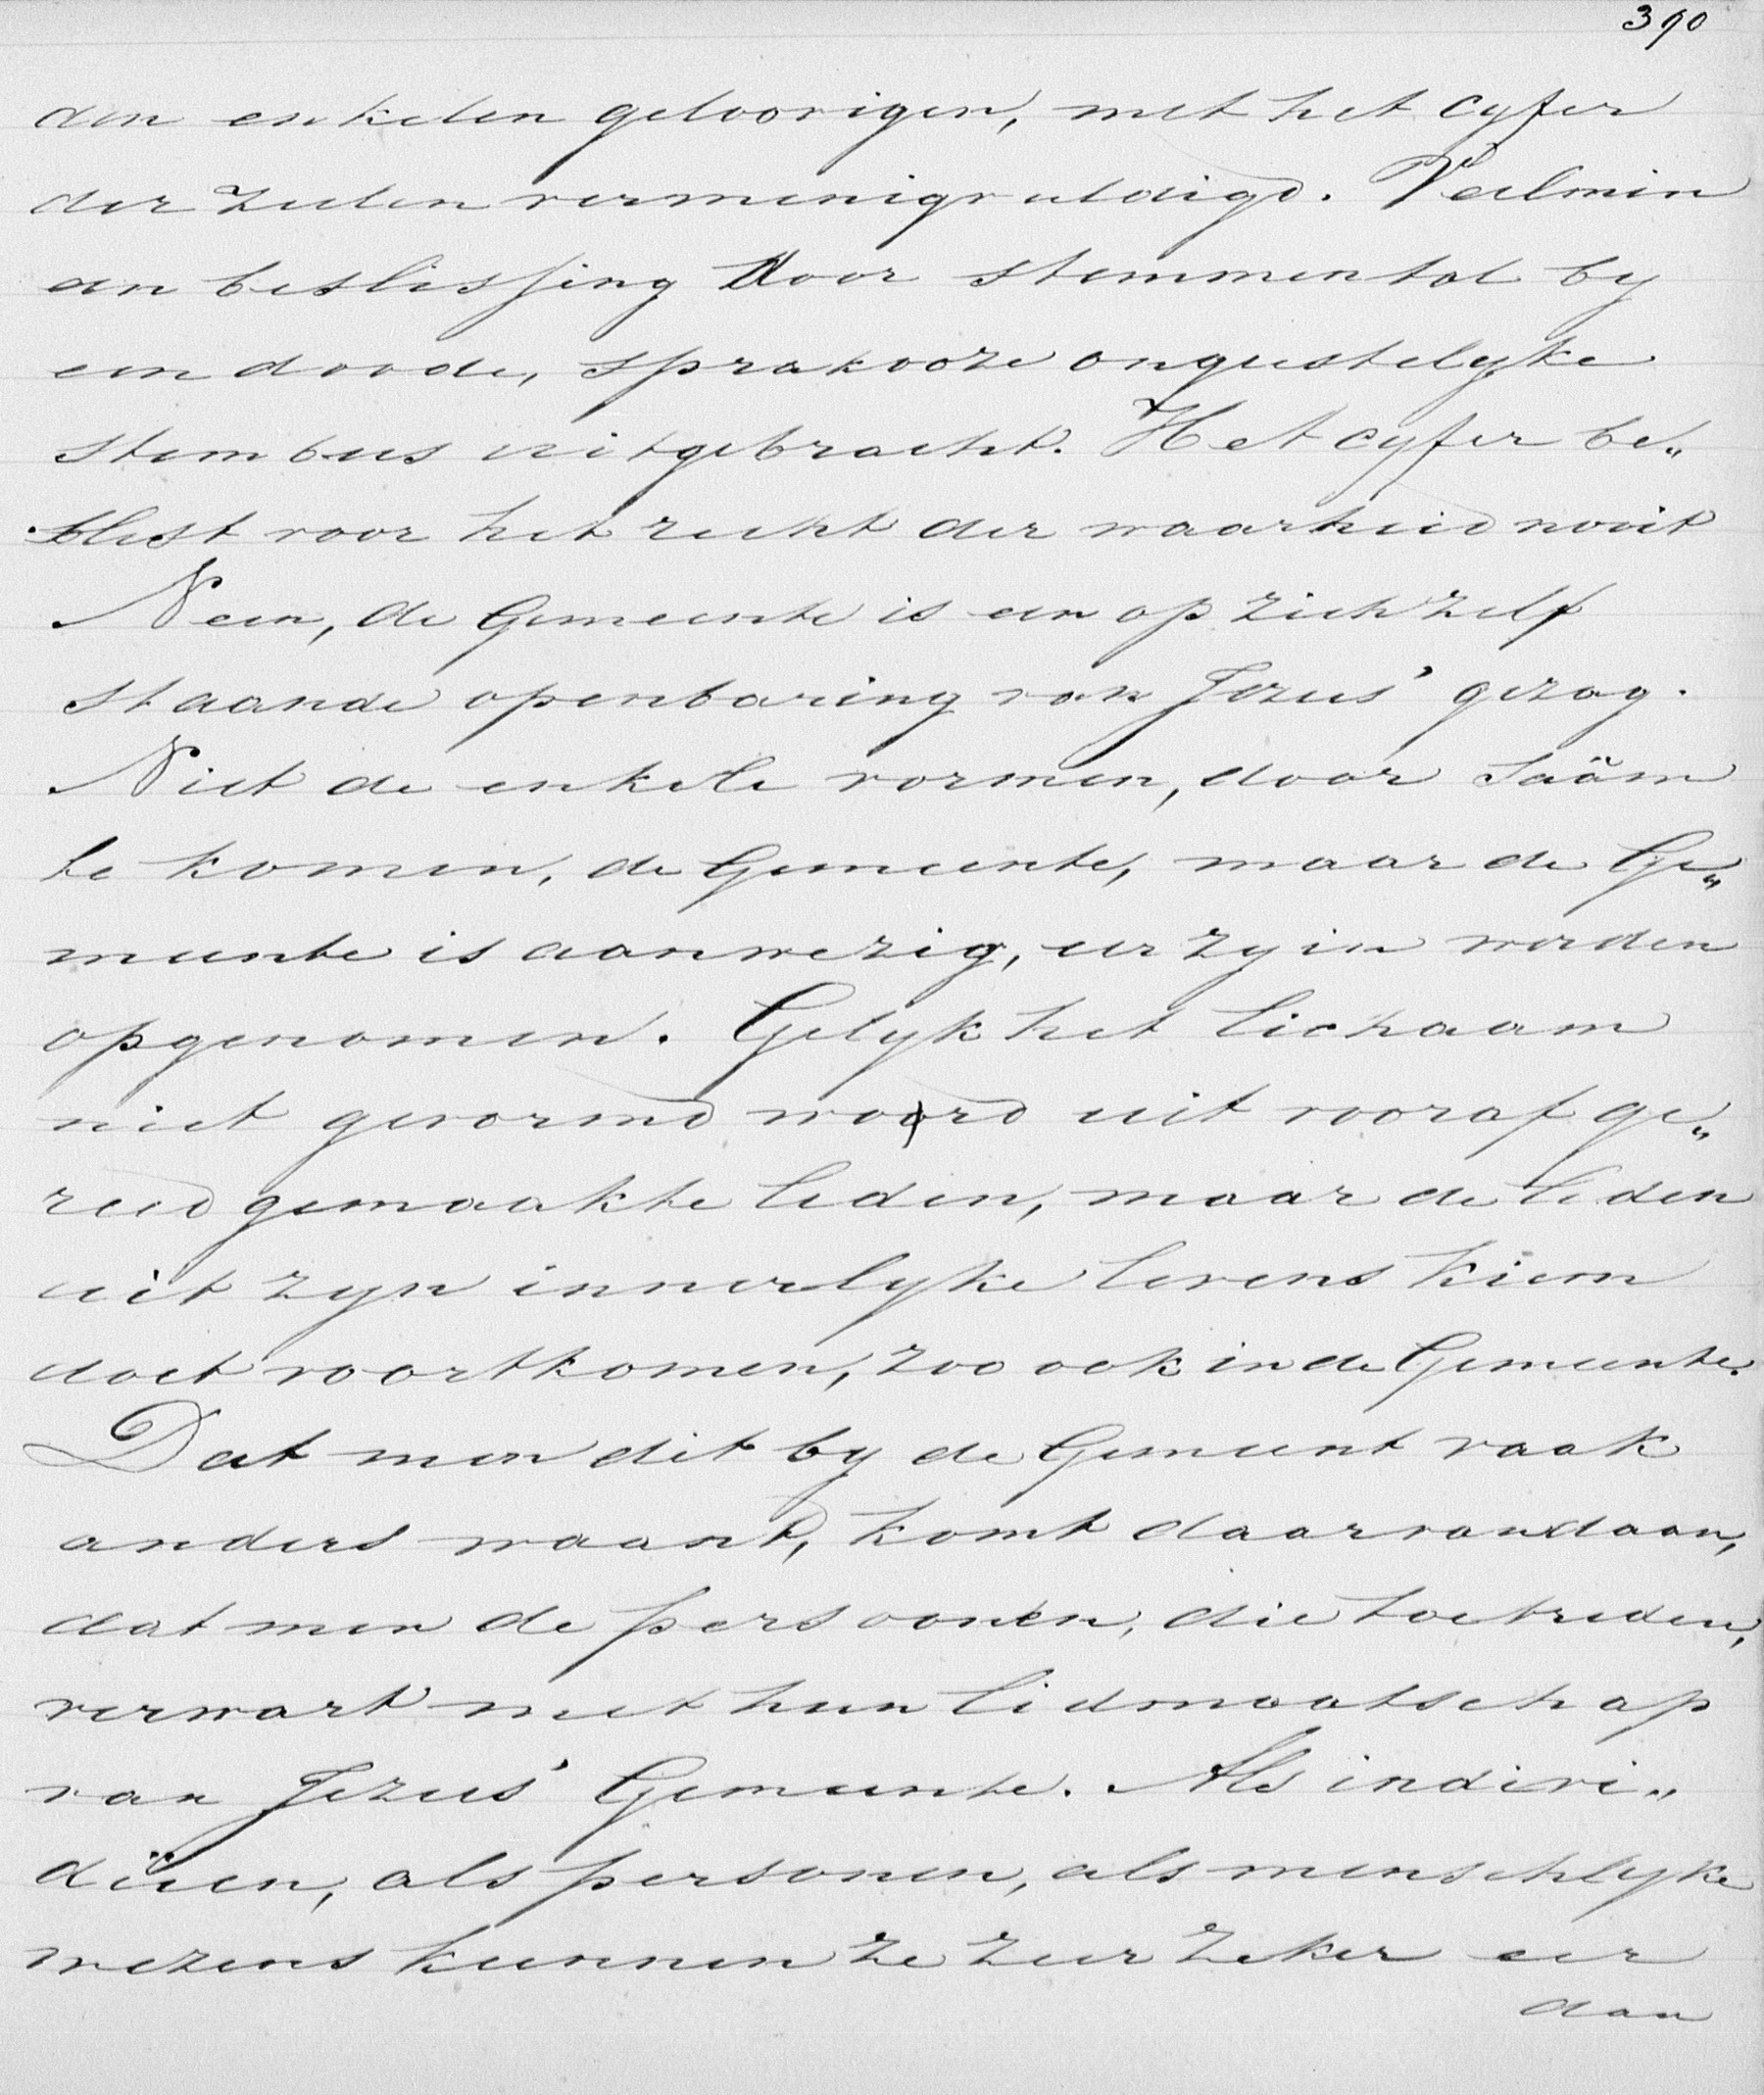 390
den enkelen geloovigen, met het cyfer
der zielen vermenigvuldigd. Veelmin
een beslissing door stemmental by
een doode, sprakooze ongeestelyke
stembus uitgebracht. Het cyfer be„
slist voor het recht der waarheid nooit
Neen, de Gemeente is een op zich zelf
staande openbaring van Jezus' gezag.
Niet de enkele vormen, door saâm
te komen, de Gemeente, maar de Ge„
meente is aanwezig, eer zy in worden
opgenomen. Gelyk het lichaam
niet gevormd word uit vooraf ge„
reed gemaakte leden, maar de leden
uit zyn innerlyke levens kiem
doet voortkomen, zoo ook in de Gemeente.
Dat men dit by de Gemeent vaak
anders waant, komt daarvandaan,
dat men de persoonen, die toetreden,
verwart met hun lidmaatschap
van Jezus' Gemeente. Als indivi„
düen, als personen, als menschlyke
wezens kunnen ze zeer zeker eer
dan